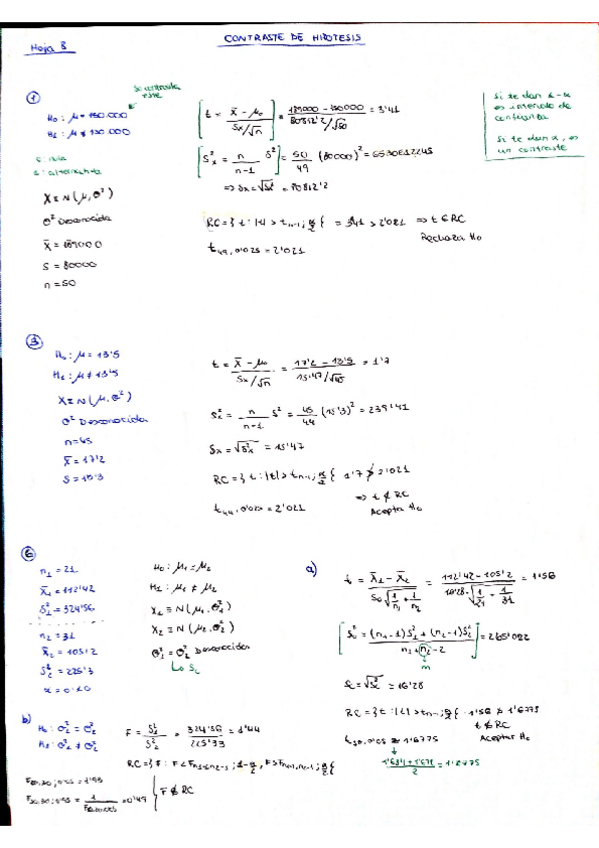 CONTRASTE DE HIPÓTESIS
Hoja 8
Se contrasta este
①
H₀ : μ = 150.000
H₁ : μ ≠ 150.000
X ≡ N(μ, σ²)
σ² Desconocida
x̄ = 189000
S = 80000
n = 50
[t = (x̄ - μ₀) / (Sx/√n)] = (189000 - 150000) / (80812'2/√50) = 3'41
[S²x = n/(n-1) S²] = 50/49 (80000)² = 6530612245
⇒ Sx = √S²x = 80812'2
RC = { t : |t| > t n-1; α/2 { = 3'41 > 2'021 ⇒ t ∈ RC
Rechaza H₀
t 49, 0'025 = 2'021
Si te dan 1-α
es intervalo de
confianza
Si te dan α, es
un contraste
③
H₀ : μ = 13'5
H₁ : μ ≠ 13'5
X ≡ N(μ, σ²)
σ² Desconocida
n = 45
x̄ = 17'2
S = 15'3
t = (x̄ - μ₀) / (Sx/√n) = (17'2 - 13'5) / (15'47/√45) = 1'7
S²x = n/(n-1) S² = 45/44 (15'3)² = 239'41
Sx = √S²x = 15'47
RC = { t : |t| > t n-1; α/2 { 1'7 ≯ 2'021
⇒ t ∉ RC
Acepta H₀
t 44, 0'025 = 2'021
⑥
n₁ = 21
x̄₁ = 112'42
S²₁ = 324'56
n₂ = 31
x̄₂ = 105'2
S²₂ = 225'3
α = 0'10
H₀ : μ₁ = μ₂
H₁ : μ₁ ≠ μ₂
X₁ ≡ N(μ₁, σ²₁)
X₂ ≡ N(μ₂, σ²₂)
σ²₁ = σ²₂ Desconocidas
a)
t = (x̄₁ - x̄₂) / (Sc √(1/n₁ + 1/n₂)) = (112'42 - 105'2) / (16'28 · √(1/21 + 1/31)) = 1'56
[S²c = ((n₁-1)S²₁ + (n₂-1)S²₂) / (n₁+n₂-2)] = 265'002
Sc = √S²c = 16'28
RC = { t : |t| > t n-1; α/2 { · 1'56 ≯ 1'6775
t ∉ RC
Aceptar H₀
t 50, 0'05 ≈ 1'6775
b)
H₀ : σ²₁ = σ²₂
H₁ : σ²₁ ≠ σ²₂
F = S²₁/S²₂ = 324'56/225'33 = 1'44
F 20,30; 0'05 = 1'93
F ∉ RC